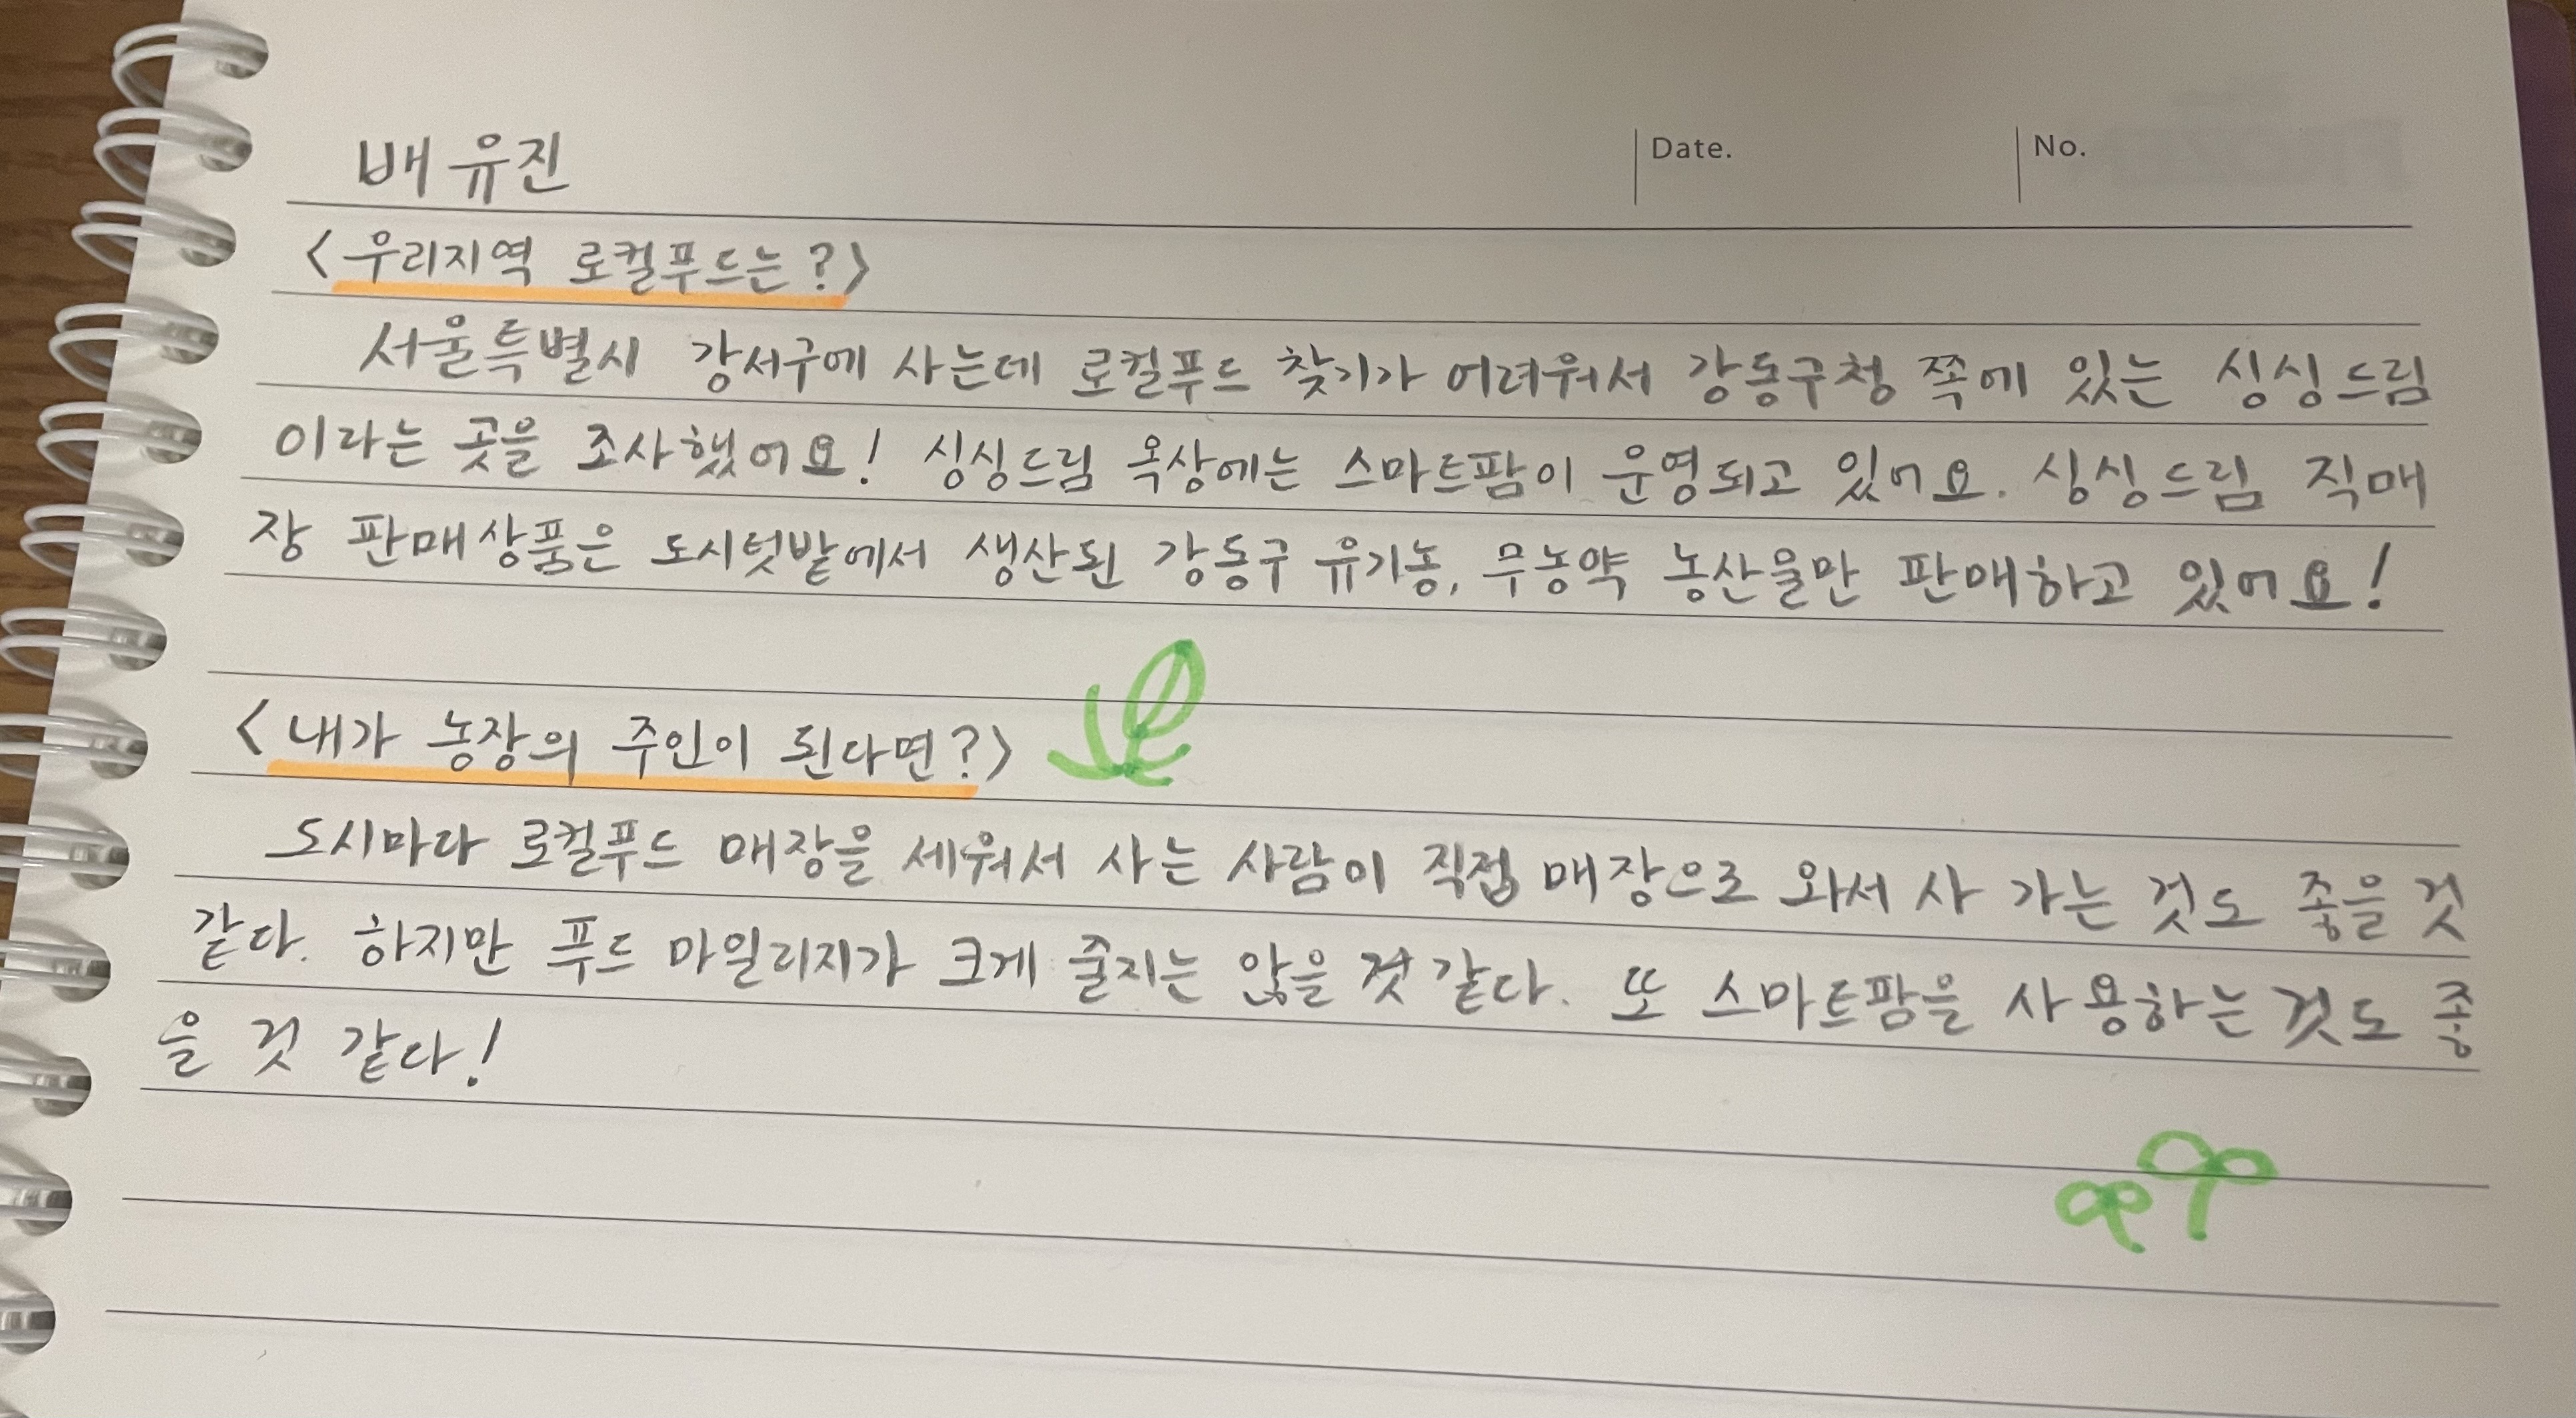 배유진
Date.
No.
<우리지역 로컬푸드는?>
서울특별시 강서구에 사는데 로컬푸드 찾기가 어려워서 강동구청 쪽에 있는 싱싱드림
이라는 곳을 조사했어요! 싱싱드림 옥상에는 스마트팜이 운영되고 있어요. 싱싱드림 직매
장 판매상품은 도시텃밭에서 생산된 강동구 유기농, 무농약 농산물만 판매하고 있어요!
<내가 농장의 주인이 된다면?>
도시마다 로컬푸드 매장을 세워서 사는 사람이 직접 매장으로 와서 사 가는 것도 좋을 것
같다. 하지만 푸드 마일리지가 크게 줄지는 않을 것 같다. 또 스마트팜을 사용하는 것도 좋
을 것 같다!